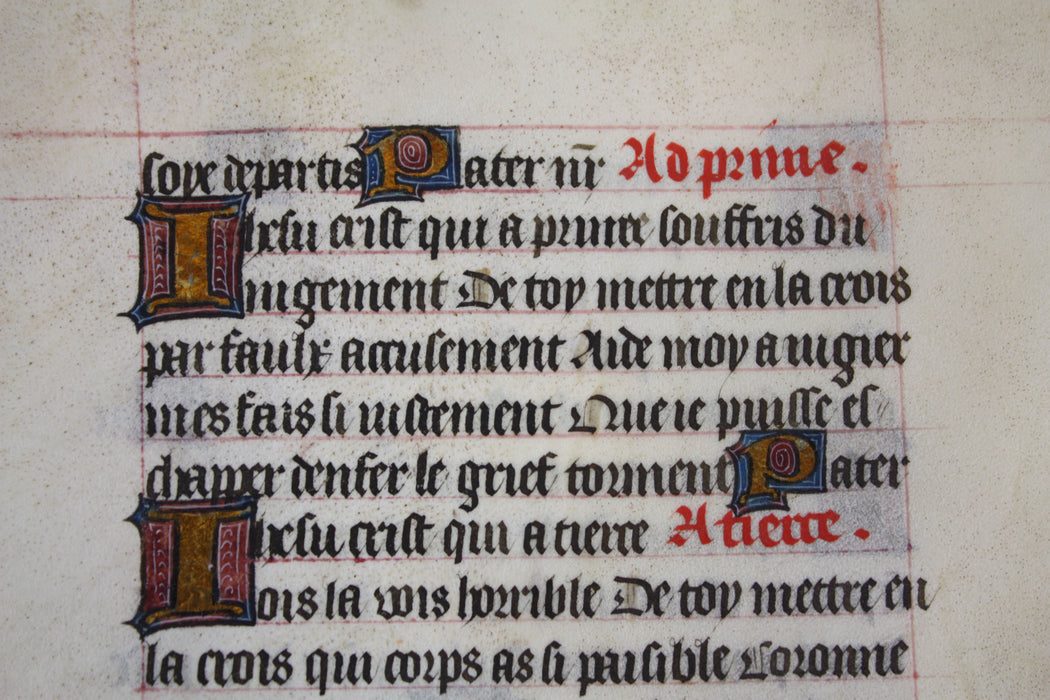 soye departis Pater nr̄ Ad prime.
Ihesu crist qui a prime souffris du
iugement De toy mettre en la crois
par faulx accusement Aide moy a iugier
mes fais si iustement Que ie puisse es
chapper denfer le grief torment Pater
Ihesu crist qui a tierce A tierce.
ois la vois horrible De toy mettre en
la crois qui corps as si paisible Coronne